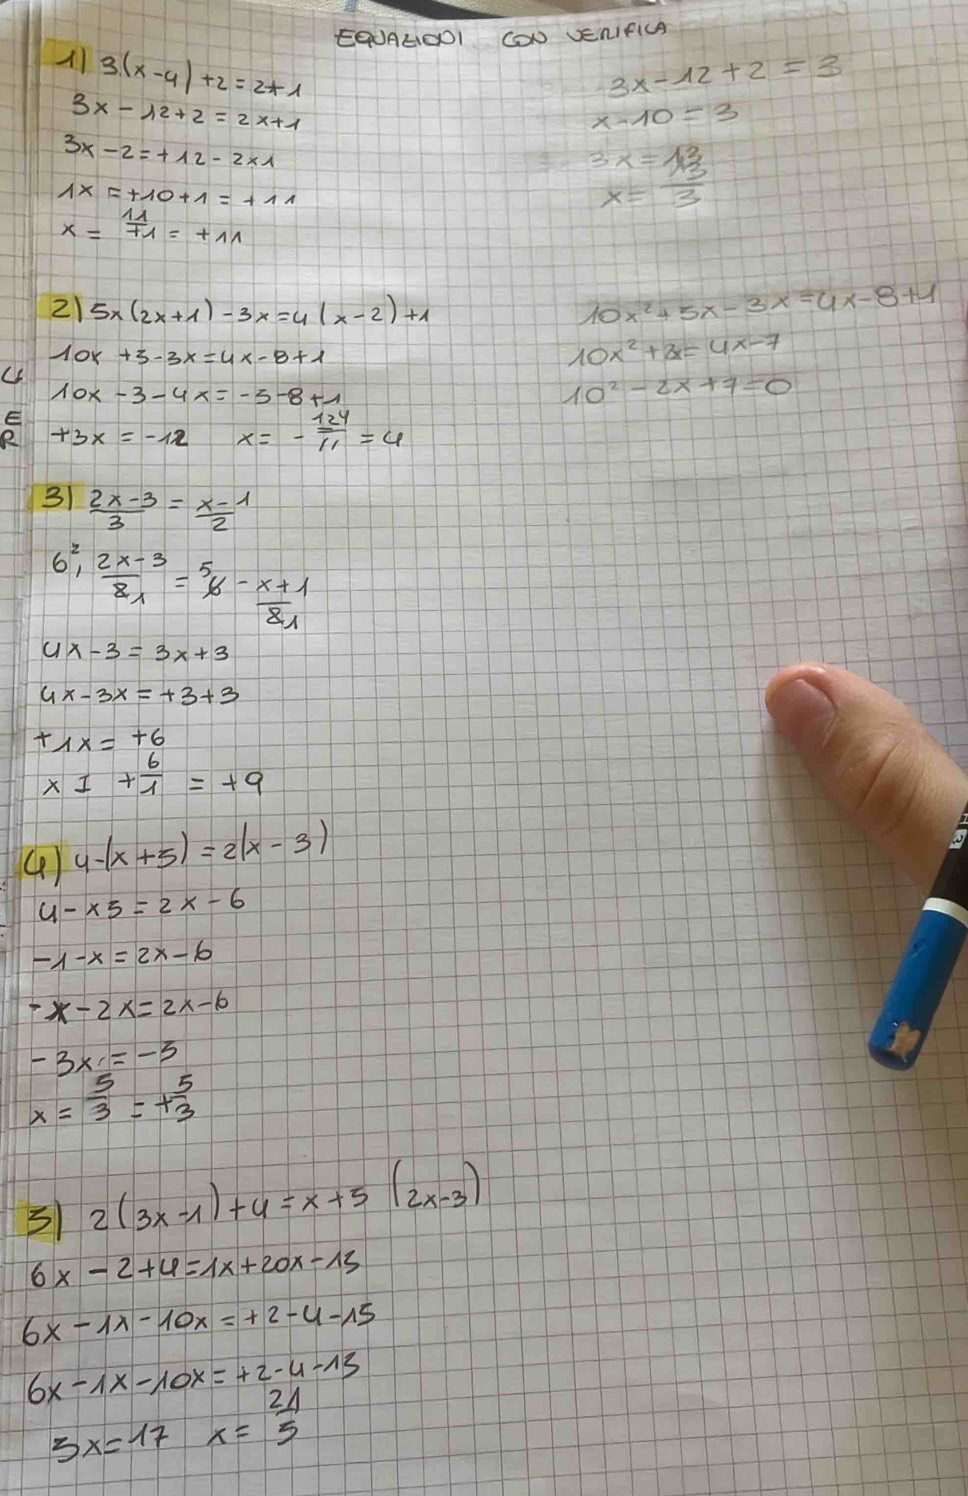 EQUAZIONI CON VERIFICA
1) 3(x-4)+2=2+1
3x-12+2=2x+1
3x-2=+12-2x1
1x=+10+1=+11
x= 11/+1 = +11
3x-12+2=3
x-10=3
3x=13
x= 13/3
2) 5x(2x+1)-3x=4(x-2)+1
10x+5-3x=4x-8+1
10x-3-4x=-5-8+1
+3x=-12 x=- 124/11 =4
10x²+5x-3x=4x-8+1
10x²+2x=4x-7
10²-2x+7=0
3) 2x-3/3 = x-1/2
4x-3=3x+3
4x-3x=+3+3
+1x=+6
x I + 6/1 = +9
4) 4-(x+5)=2(x-3)
4-x5=2x-6
-1-x=2x-6
-x-2x=2x-6
-3x=-5
x= 5/3 =+ 5/3
5) 2(3x-1)+4=x+5 (2x-3)
6x-2+4=1x+20x-15
6x-1x-10x=+2-4-15
6x-1x-10x=+2-4-15
5x=17 x= 21/5